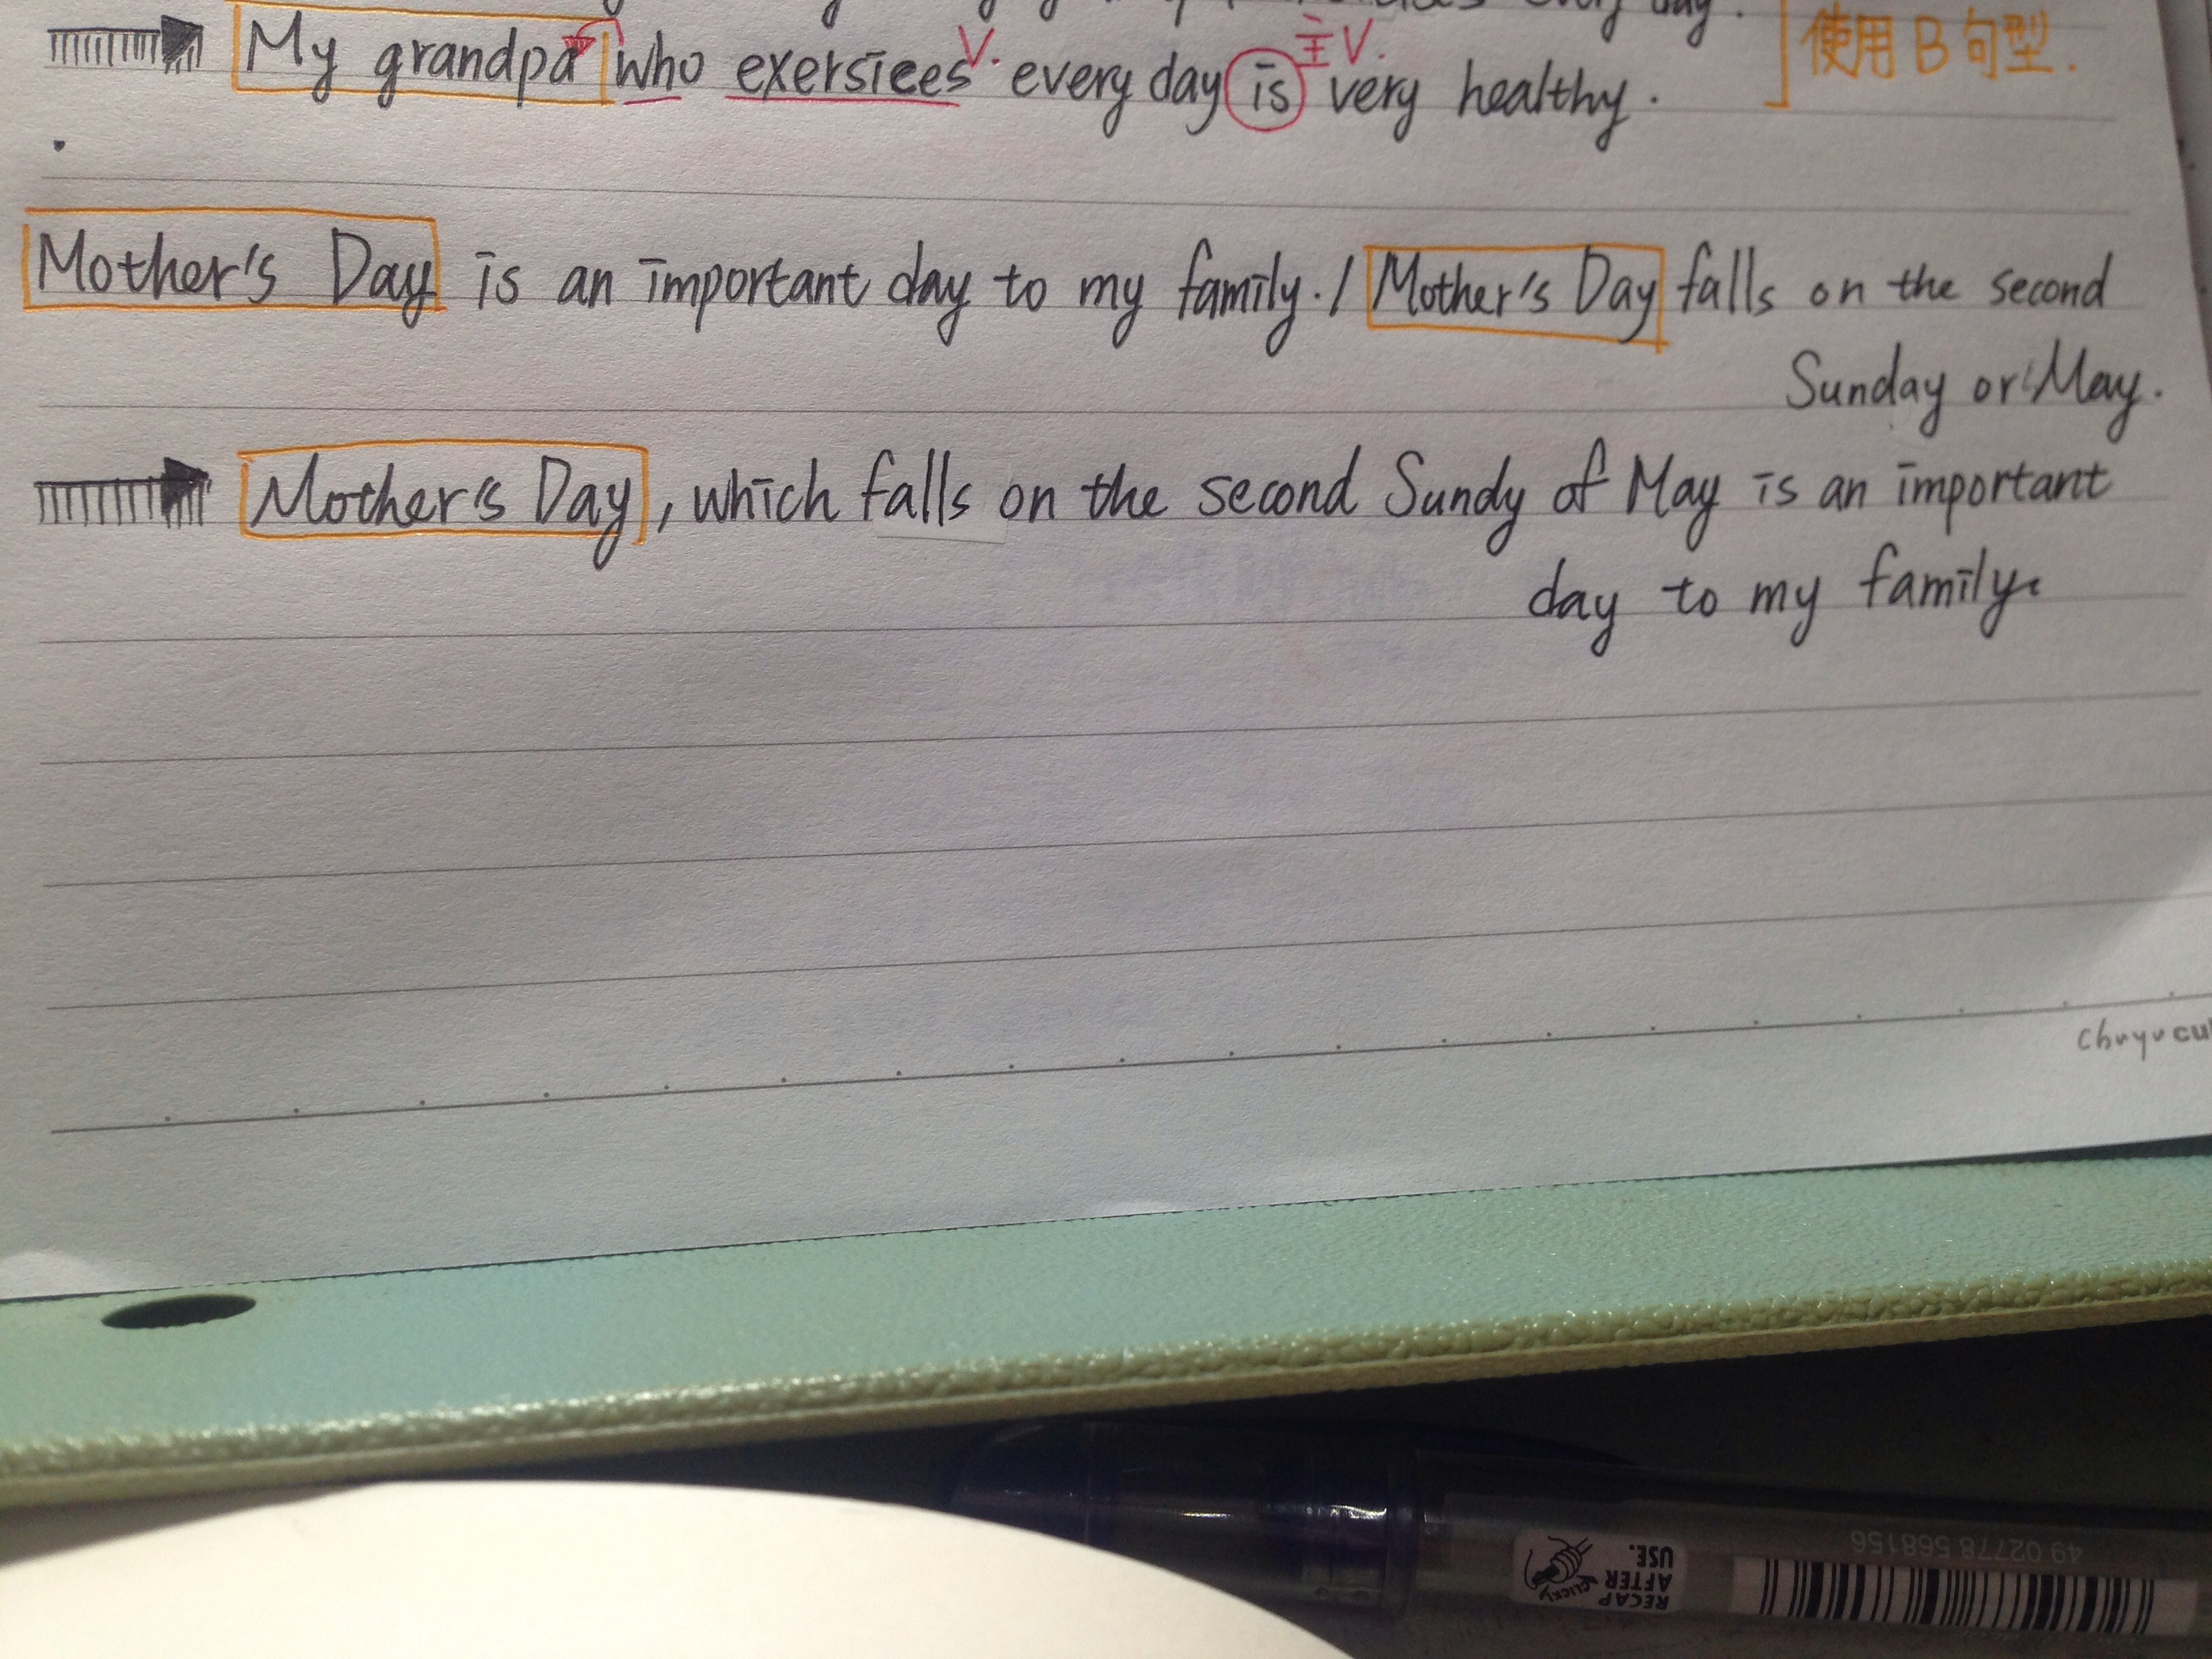 every day.
My grandpa who exersices every day is very healthy.
V.
主V.
使用B句型.
Mother's Day is an important day to my family. / Mother's Day falls on the second
Sunday or May.
Mother's Day, which falls on the second Sundy of May is an important
day to my family.
RECAP
AFTER
USE.
CLICK
49 02778 568156